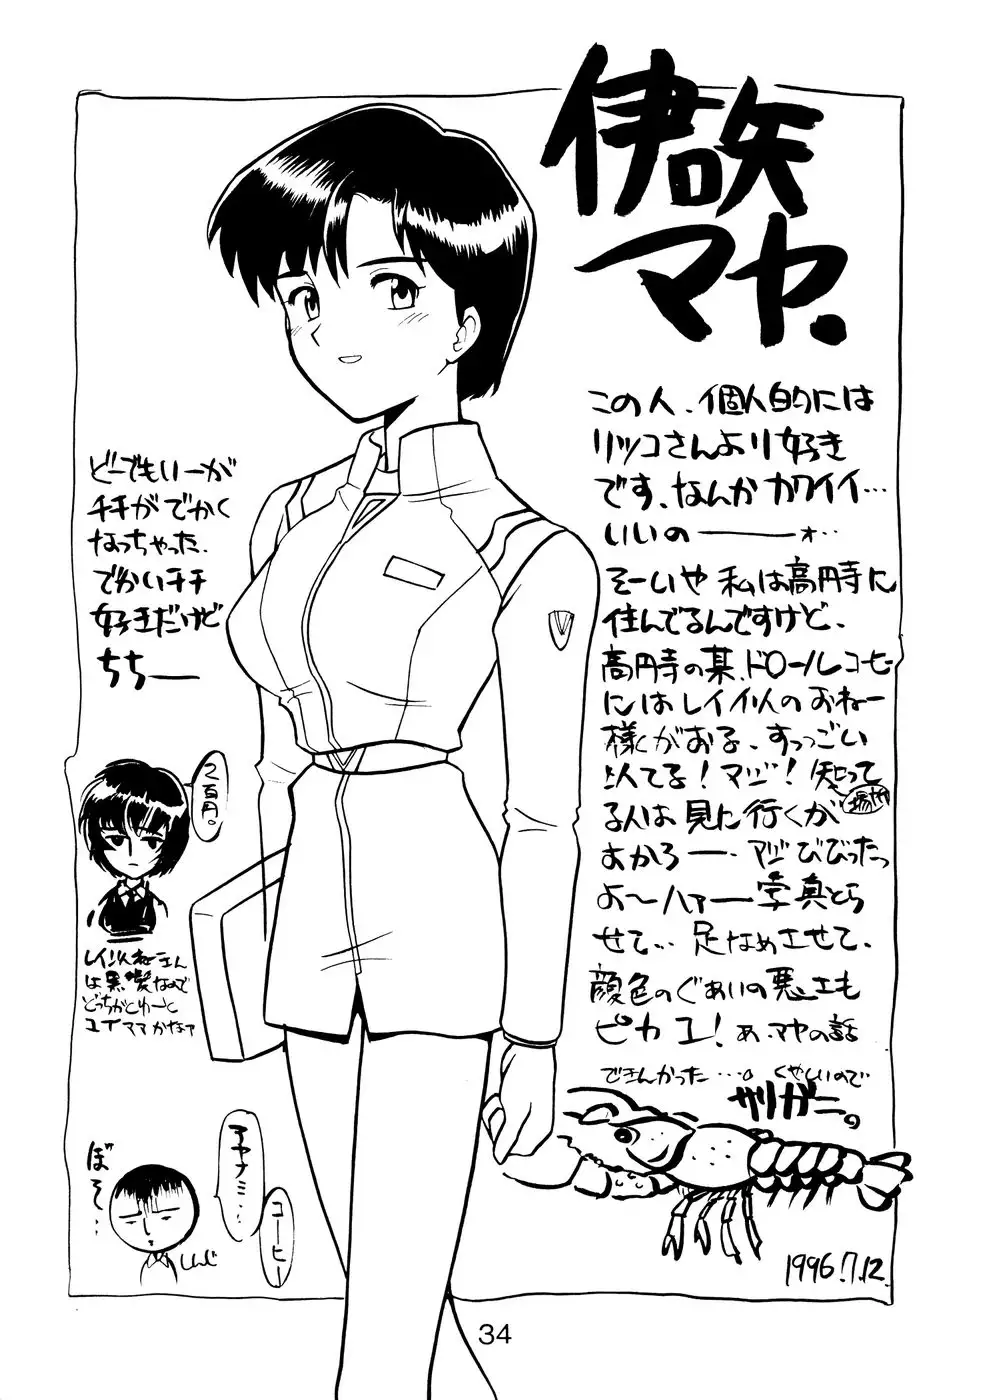 伊吹
マヤ.
この人、個人的には
リツコさんより好き
です、なんかカワイイ…
いいの――ォ‥
そーいや 私は高円寺に
住んでるんですけど、
高円寺の某、ドロールコヒ
にはレイ似のおねー
様がおる、すっっごい
似てる!マジ!知って
場所
る人は見に行くが
よかろ――.マジびびったっ
よ〜ハァ――写真とら
せて… 足なめさせて、
顔色のぐあいの悪エも
ピカユ!あ、マヤの話
できんかった…。くやしいので
サリガニ。
どーでもいーが
チチがでかく
なっちゃった.
でかいチチ
好きだけど
ちちー
2百円。
レイ似ねーさん
は黒髪なので
どっちかとゆーと
ユイママかなァ
ぼそ‥
コーヒー
しんじ
1996.7.12.
34